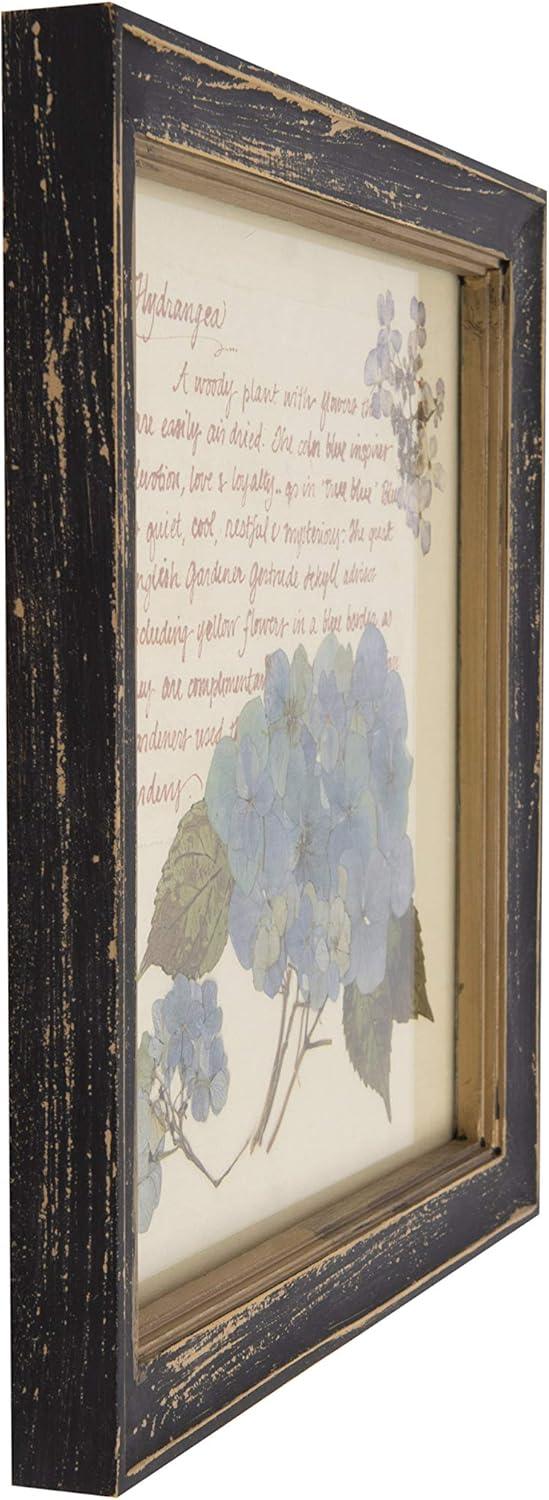 Hydrangea
A woody plant with flowers th
are easily air dried. The color blue inspires
devotion, love & loyalty.. as in "true blue" Blue
quiet, cool, restful & mysterious. The great
nglish Gardener Gertrude Jekyll advises
ncluding yellow flowers in a blue border as
hey are complimentar
ardeners used th
rdens.